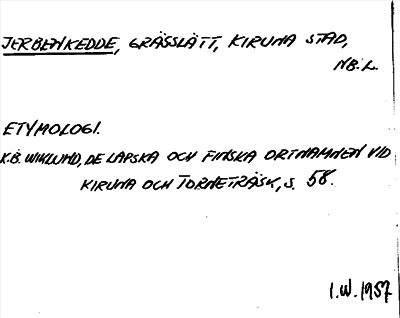 JERBENKEDDE, GRÄSSLÄTT, KIRUNA STAD,
NB.L.
ETYMOLOGI.
K.B. WIKLUND, DE LAPSKA OCH FINSKA ORTNAMNEN VID
KIRUNA OCH TORNETRÄSK, S. 58.
I.W. 1957